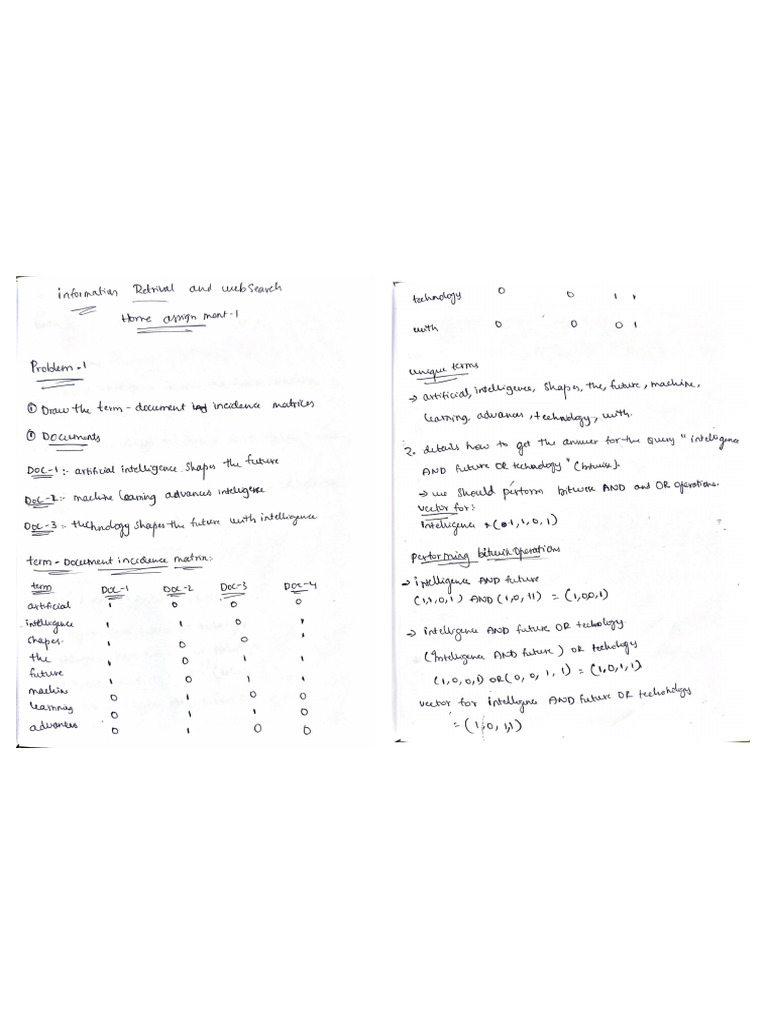 information Retrival and web Search
Home assignment-1
Problem-1
① Draw the term-document incidence matrices
① Documents
Doc-1:- artificial intelligence shapes the future
Doc-2:- machine learning advances intelligence
Doc-3:- technology shapes the future with intelligence
term-Document incidence matrix:
term Doc-1 Doc-2 Doc-3 Doc-4
artificial 1 0 0 0
intelligence 1 1 0 1
shapes. 1 0 0 1
the 1 0 1 1
future 1 0 1 1
machin 0 1 0 0
learning 0 1 1 0
advances 0 1 0 0
technology 0 0 1 1
with 0 0 0 1
unique terms
→ artificial, intelligence, Shapes, the, future, machine,
learning advances, technology, with.
2. details how to get the answer for the query "intelligence
AND future OR technology" (bitwise).
→ we should perform bitwise AND and OR operations.
vector for:
intelligence → (1,1,0,1)
Performing bitwise operations
→ intelligence AND future
(1,1,0,1) AND (1,0,11) = (1,0,0,1)
→ intelligence AND future OR techology
(intelligence AND future) OR techology
(1,0,0,1) OR (0,0,1,1) = (1,0,1,1)
vector for intelligence AND future OR techology
= (1,0,1,1)